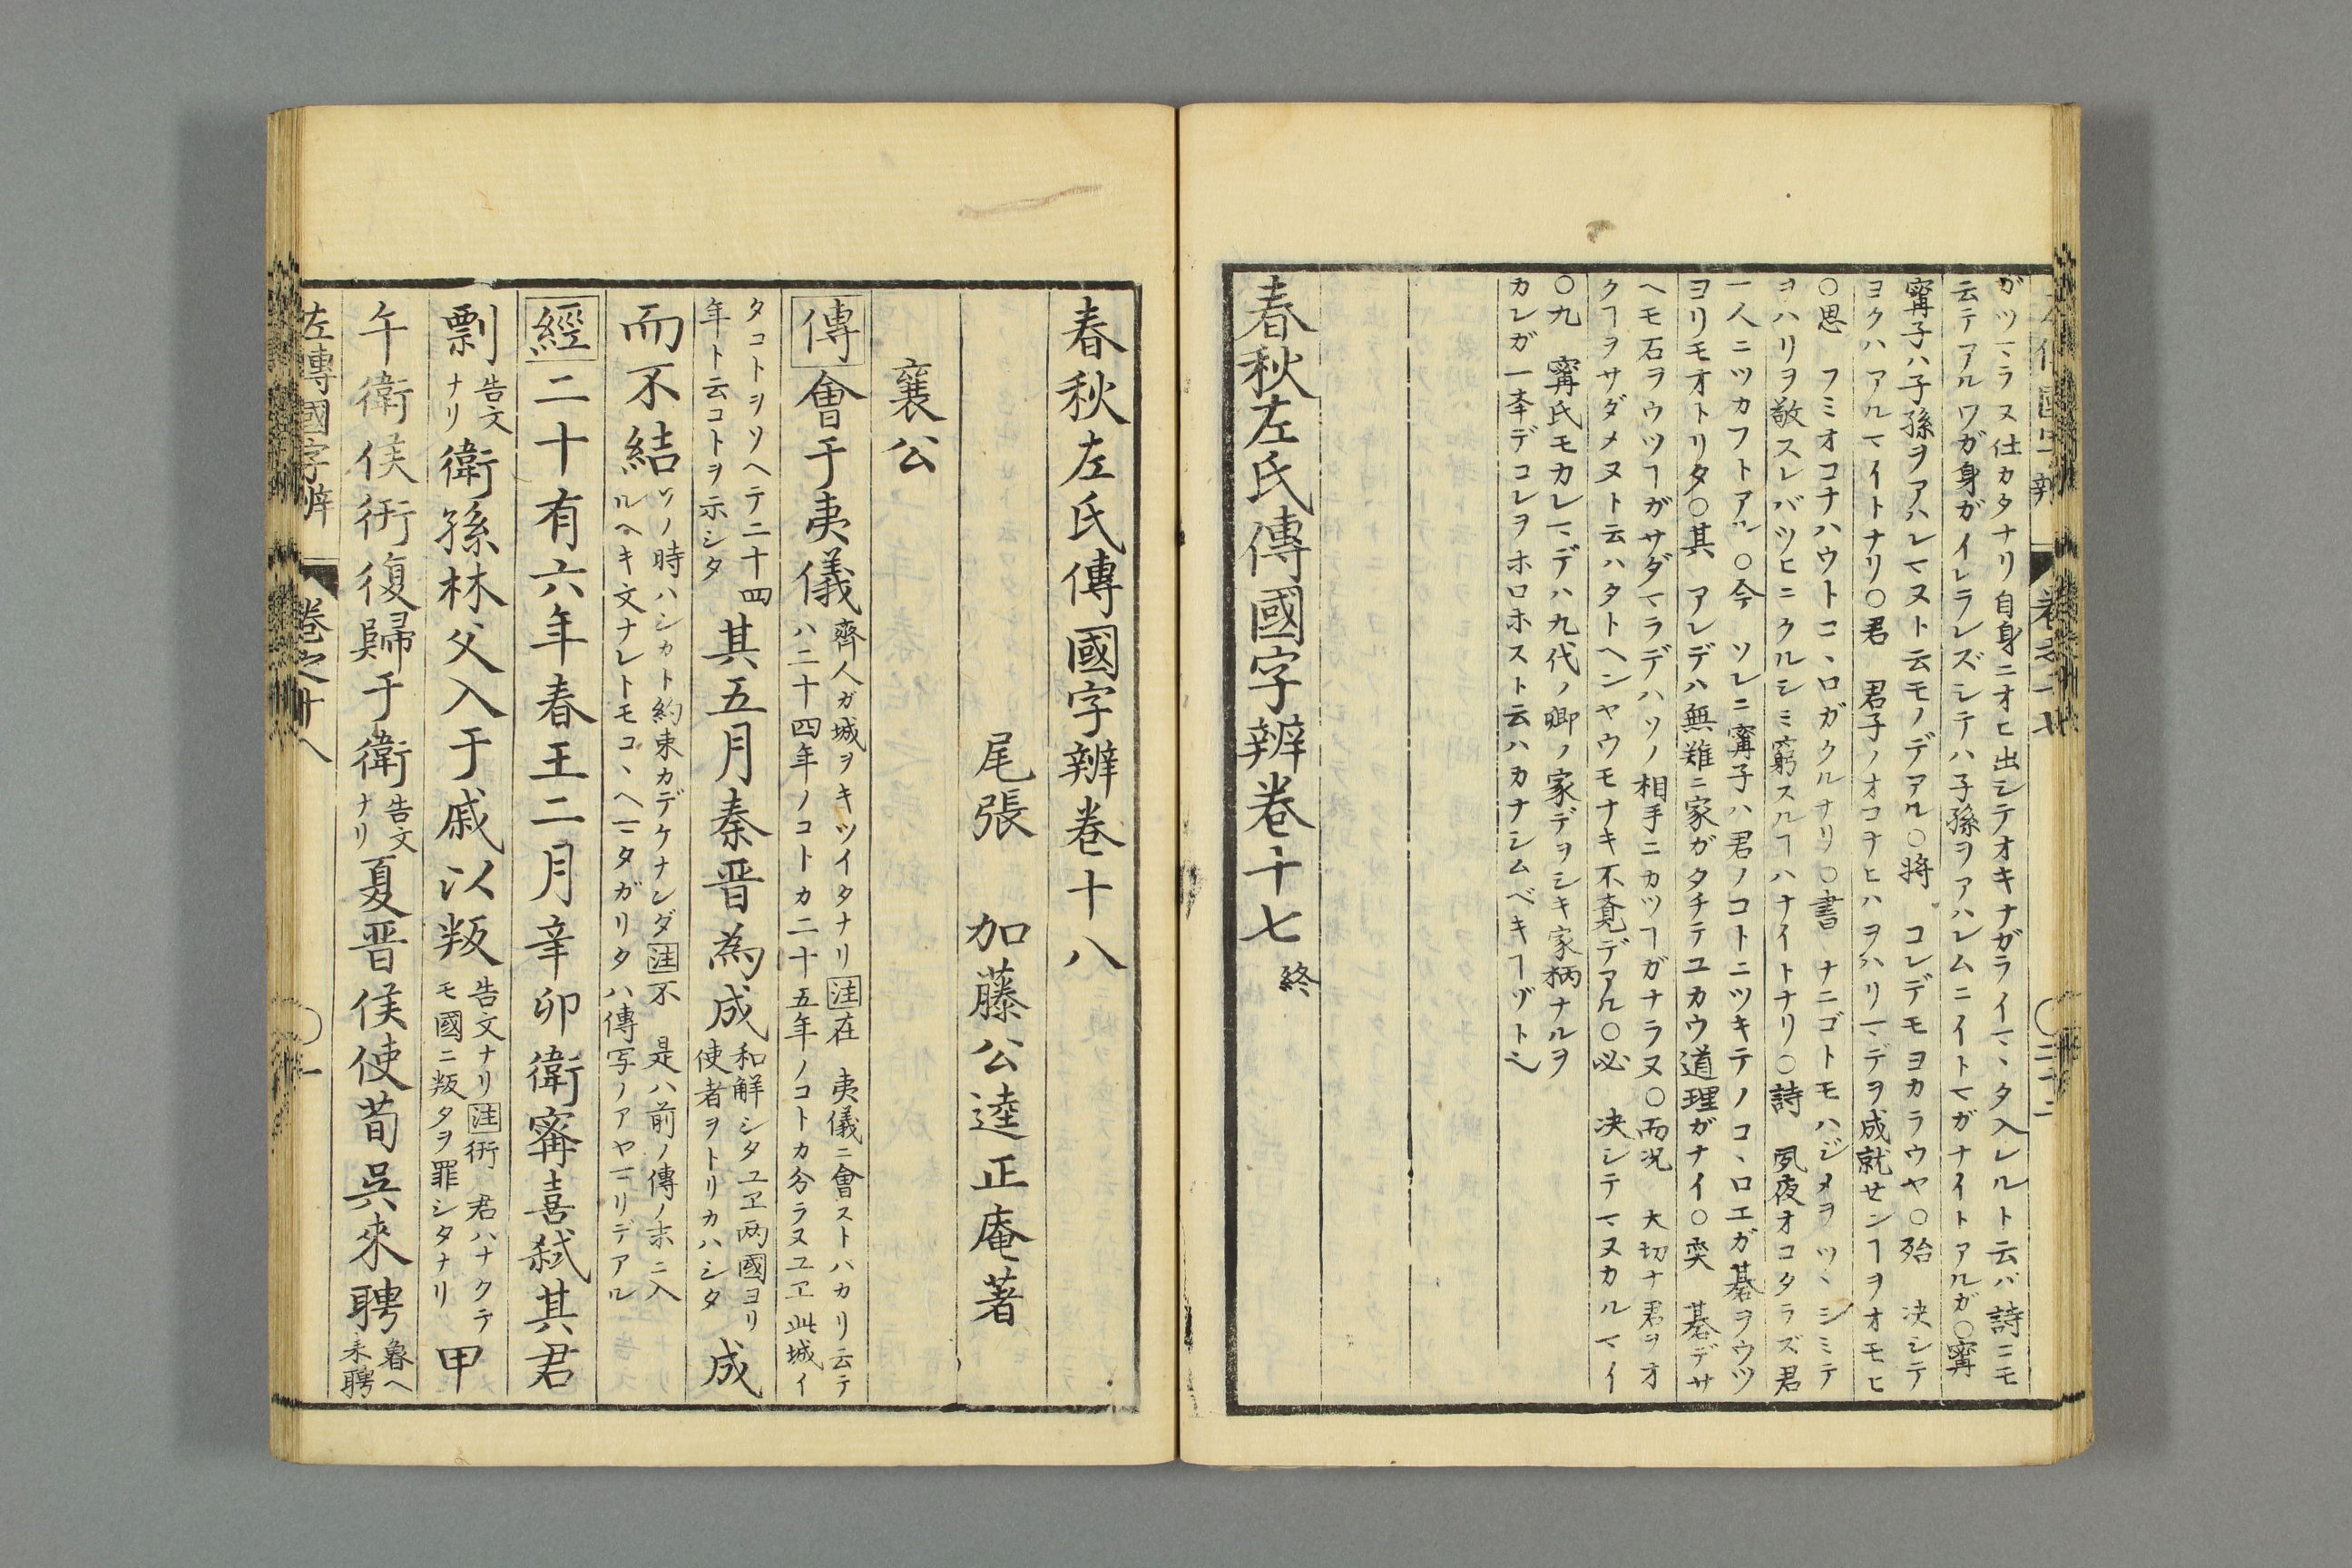 ガツヿラヌ仕カタナリ自身ニオヒ出シテオキナガライマヽタ入レルト云バ詩ニモ
云テアルワガ身ガイレラレズシテハ子孫ヲアハレムニイトマガナイトアルガ○甯
甯子ハ子孫ヲアハレマヌト云モノデアル○將 コレデモヨカラウヤ○殆 决シテ
ヨクハアルマイトナリ○君 君子ノオコナヒハヲハリマデヲ成就センヿヲオモヒ
○思 フミオコナハウトコヽロガクルナリ○書 ナニゴトモハジメヲツヽシミテ
ヲハリヲ敬スレバツヒニクルシミ窮スルヿハナイトナリ○詩 夙夜オコタラズ君
一人ニツカフトアル○今 ソレニ甯子ハ君ノコトニツキテノコヽロエガ碁ヲウツ
ヨリモオトリタ○其 アレデハ無難ニ家ガタチテユカウ道理ガナイ○奕 碁デサ
ヘモ石ヲウツヿガサダマラデハソノ相手ニカツヿガナラヌ○而况 大切ナ君ヲオ
クヿヲサダメヌト云ハタトヘンヤウモナキ不覚デアル○必 决シテマヌカルマイ
○九 甯氏モカレマデハ九代ノ卿ノ家デヲシキ家柄ナルヲ
カレガ一夲デコレヲホロホスト云ハカナシムベキヿヅト也
春秋左氏傳國字辨卷十七 終
春秋左氏傳國字辨卷十八
尾張 加藤公逵正庵著
襄公
傳會于夷儀 齊人ガ城ヲキツイタナリ 注在 夷儀ニ會ストハカリ云テ
ハ二十四年ノコトカ二十五年ノコトカ分ラヌユヱ此城イ
タコトヲソヘテ二十四
年ト云コトヲ示シタ 其五月秦晋為成 和解シタユヱ两國ヨリ
使者ヲトリカハシタ 成
而不結 ソノ時ハシカト約束カデケナンダ 注不 是ハ前ノ傳ノ末ニ入
ルヘキ文ナレトモコヽヘマタガリタハ傳写ノアヤマリデアル
經二十有六年春王二月辛卯衛甯喜弒其君
剽 告文
ナリ 衛孫林父入于戚以叛 告文ナリ 注衎 君ハナクテ
モ國ニ叛タヲ罪シタナリ 甲
午衛侯衎復歸于衛 告文
ナリ 夏晋侯使荀吳來聘 魯ヘ
来聘
左傳國字辨 卷之十八 ○一